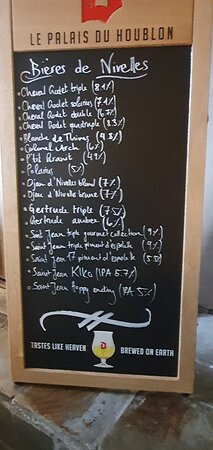 LE PALAIS DU HOUBLON
Bières de Nivelles
Cheval Godet triple (8.1%)
Cheval Godet solarius (7.1%)
Cheval Godet double (6.7%)
Cheval Godet quadruple (8.3%)
Blanche de Thines
Colonel Arch (6%)
P'tit Granit (4.9%)
Polarius (5%)
Djean d'Nivelles blond (7%)
Djean d'Nivelles brune (7%)
Gertrude triple (7.5%)
Gertrude ambrée (6%)
Saint Jean triple gourmet collection (9%)
Saint Jean triple piment d'espelette (9%)
Saint Jean piment d'espelette (5.5)
Saint Jean KIKO (IPA 6.7%)
Saint Jean Hoppy ending (IPA 5%)
TASTES LIKE HEAVEN
BREWED ON EARTH